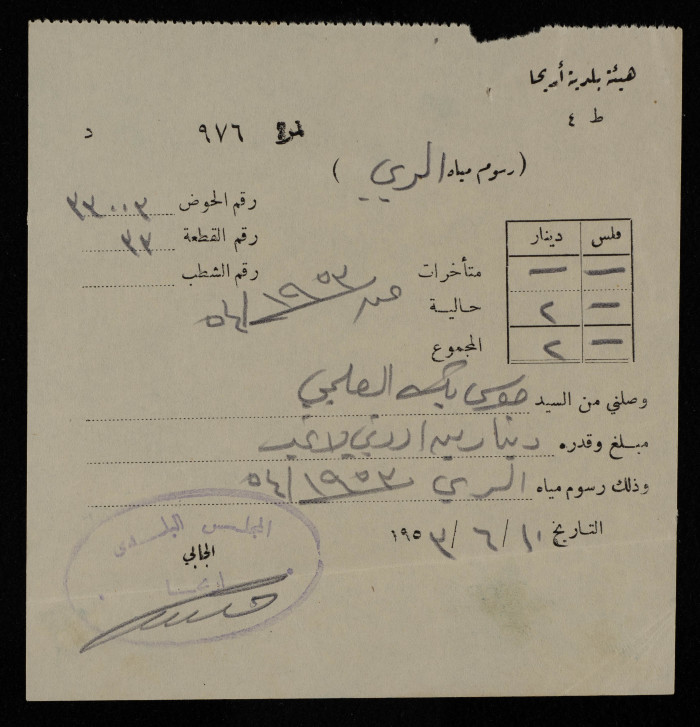 هيئة بلدية أريحا
ط ٤
نمرة ٩٧٦ د
(رسوم مياه الري)
رقم الحوض ٣٣٠٠٣
رقم القطعة ٣٣
رقم الشطب
فلس دينار
متأخرات — —
حالية — ٢
المجموع — ٢
عن ١٩٥٣/٥٤
وصلني من السيد موسى بك العلمي
مبلغ وقدره دينارين اردني لا غير
وذلك رسوم مياه الري ١٩٥٣/٥٤
التاريخ ١٠/٦/١٩٥٣
المجلس البلدي
الجابي
اريحا